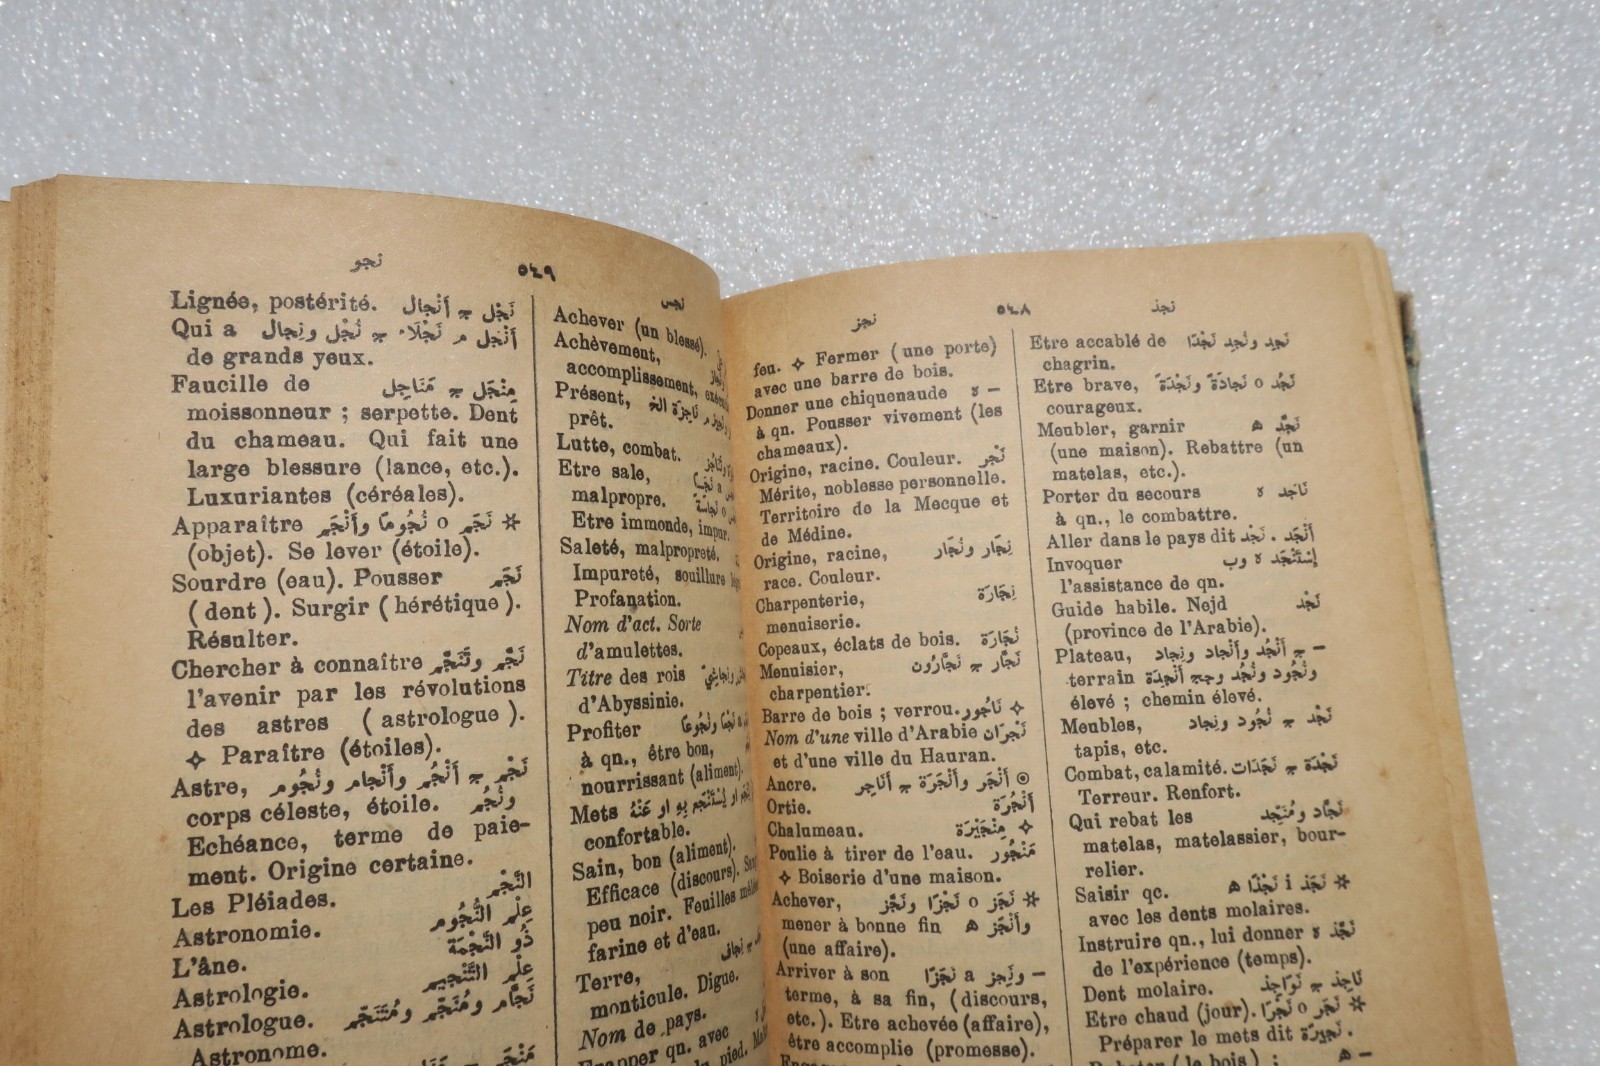 نجذ ٥٤٨ نجز
Etre accablé de نَجِد ونُجِد نَجْدًا
chagrin.
Etre brave, نَجُد o نَجادَةً ونَجْدَةً
courageux.
Meubler, garnir نَجَّد ه
(une maison). Rebattre (un
matelas, etc.).
Porter du secours نَاجَد ه
à qn., le combattre.
Aller dans le pays dit نَجْد . أَنْجَد
Invoquer إِسْتَنْجَد ه وب
l'assistance de qn.
Guide habile. Nejd نَجْد
(province de l'Arabie).
Plateau, – ج أَنْجُد وأَنْجاد ونِجاد
terrain ونُجُود ونُجُد وجج أَنْجِدَة
élevé ; chemin élevé.
Meubles, نَجْد ج نُجُود ونِجاد
tapis, etc.
Combat, calamité. نَجْدَة ج نَجَدَات
Terreur. Renfort.
Qui rebat les نَجَّاد ومُنَجِّد
matelas, matelassier, bour-
relier.
Saisir qc. ✻ نَجَذ i نَجْذًا ه
avec les dents molaires.
Instruire qn., lui donner نَجَّذ ه
de l'expérience (temps).
Dent molaire. نَاجِذ ج نَوَاجِذ
Etre chaud (jour). ✻ نَجَر o نَجْرًا
Préparer le mets dit نَجِيرَة .
Raboter (le bois) ; – ه
feu. ✧ Fermer (une porte)
avec une barre de bois.
Donner une chiquenaude – ه
à qn. Pousser vivement (les
chameaux).
Origine, racine. Couleur. نَجْر
Mérite, noblesse personnelle.
Territoire de la Mecque et
de Médine.
Origine, racine, نِجَار ونُجَار
race. Couleur.
Charpenterie, نِجَارَة
menuiserie.
Copeaux, éclats de bois. نُجَارَة
Menuisier, نَجَّار ج نَجَّارُون
charpentier.
Barre de bois ; verrou. ✧ نَاجُور
Nom d'une ville d'Arabie نَجْرَان
et d'une ville du Hauran.
Ancre. ⊙ أَنْجَر وأَنْجَرَة ج أَنَاجِر
Ortie. أَنْجُرَة
Chalumeau. ✧ مِنْجَيْرَة
Poulie à tirer de l'eau. مَنْجُور
✧ Boiserie d'une maison.
Achever, ✻ نَجَز o نَجْزًا ونَجَّز
mener à bonne fin وأَنْجَز ه
(une affaire).
Arriver à son – ونَجِز a نَجَزًا
terme, à sa fin, (discours,
etc.). Etre achevée (affaire),
être accomplie (promesse).
نجس ٥٤٩ نجو
Achever (un blessé).
Achèvement,
accomplissement,
Présent, م نَاجِزَة الخ
prêt.
Lutte, combat.
Etre sale,
malpropre.
Etre immonde, impur.
Saleté, malpropreté.
Impureté, souillure
Profanation.
Nom d'act. Sorte
d'amulettes.
Titre des rois
d'Abyssinie.
Profiter
à qn., être bon,
nourrissant (aliment).
Mets
confortable.
Sain, bon (aliment).
Efficace (discours).
peu noir. Feuilles
farine et d'eau.
Terre,
monticule. Digue.
Nom de pays.
Frapper qn. avec
du pied.
Lignée, postérité. نَجْل ج أَنْجال
Qui a أَنْجَل م نَجْلَاء ج نُجْل ونِجال
de grands yeux.
Faucille de مِنْجَل ج مَنَاجِل
moissonneur ; serpette. Dent
du chameau. Qui fait une
large blessure (lance, etc.).
Luxuriantes (céréales).
Apparaître ✻ نَجَم o نُجُومًا وأَنْجَم
(objet). Se lever (étoile).
Sourdre (eau). Pousser نَجَم
(dent). Surgir (hérétique).
Résulter.
Chercher à connaître نَجَّم وتَنَجَّم
l'avenir par les révolutions
des astres (astrologue).
✧ Paraître (étoiles).
Astre, نَجْم ج أَنْجُم وأَنْجام ونُجُوم
corps céleste, étoile. ونُجُم
Echéance, terme de paie-
ment. Origine certaine.
Les Pléiades. النَّجْم
Astronomie. عِلْم النُّجُوم
L'âne. ذُو النَّجْمَة
Astrologie. عِلْم التَّنْجِيم
Astrologue. نَجَّام ومُنَجِّم ومُتَنَجِّم
Astronome.